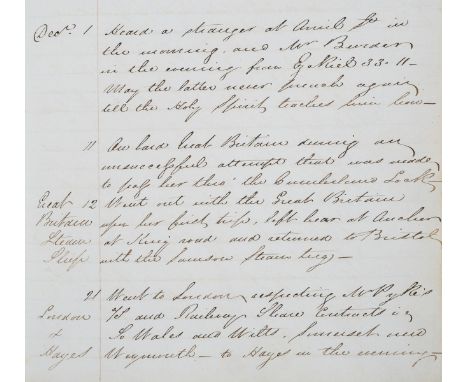 Decr. 1 Heard a stranger at in
the morning, and Mr Burder
in the evening from Ezekiel 33. 11 —
May the latter never preach again
till the Holy Spirit teaches him how —
11 On board Great Britain during an
unsuccessful attempt that was made
to pass her thro' the Cumberland Locks
Great 12 Went out with the Great Britain
Britain upon her first trip, left her at Anchor
Steam at King road and returned to Bristol
Ship with the Samson Steam tug —
21 Went to London respecting Mr Pyke's
London and Railway Share Contracts in
& So Wales and Wilts, Somerset and
Hayes Weymouth — to Hayes in the evening —